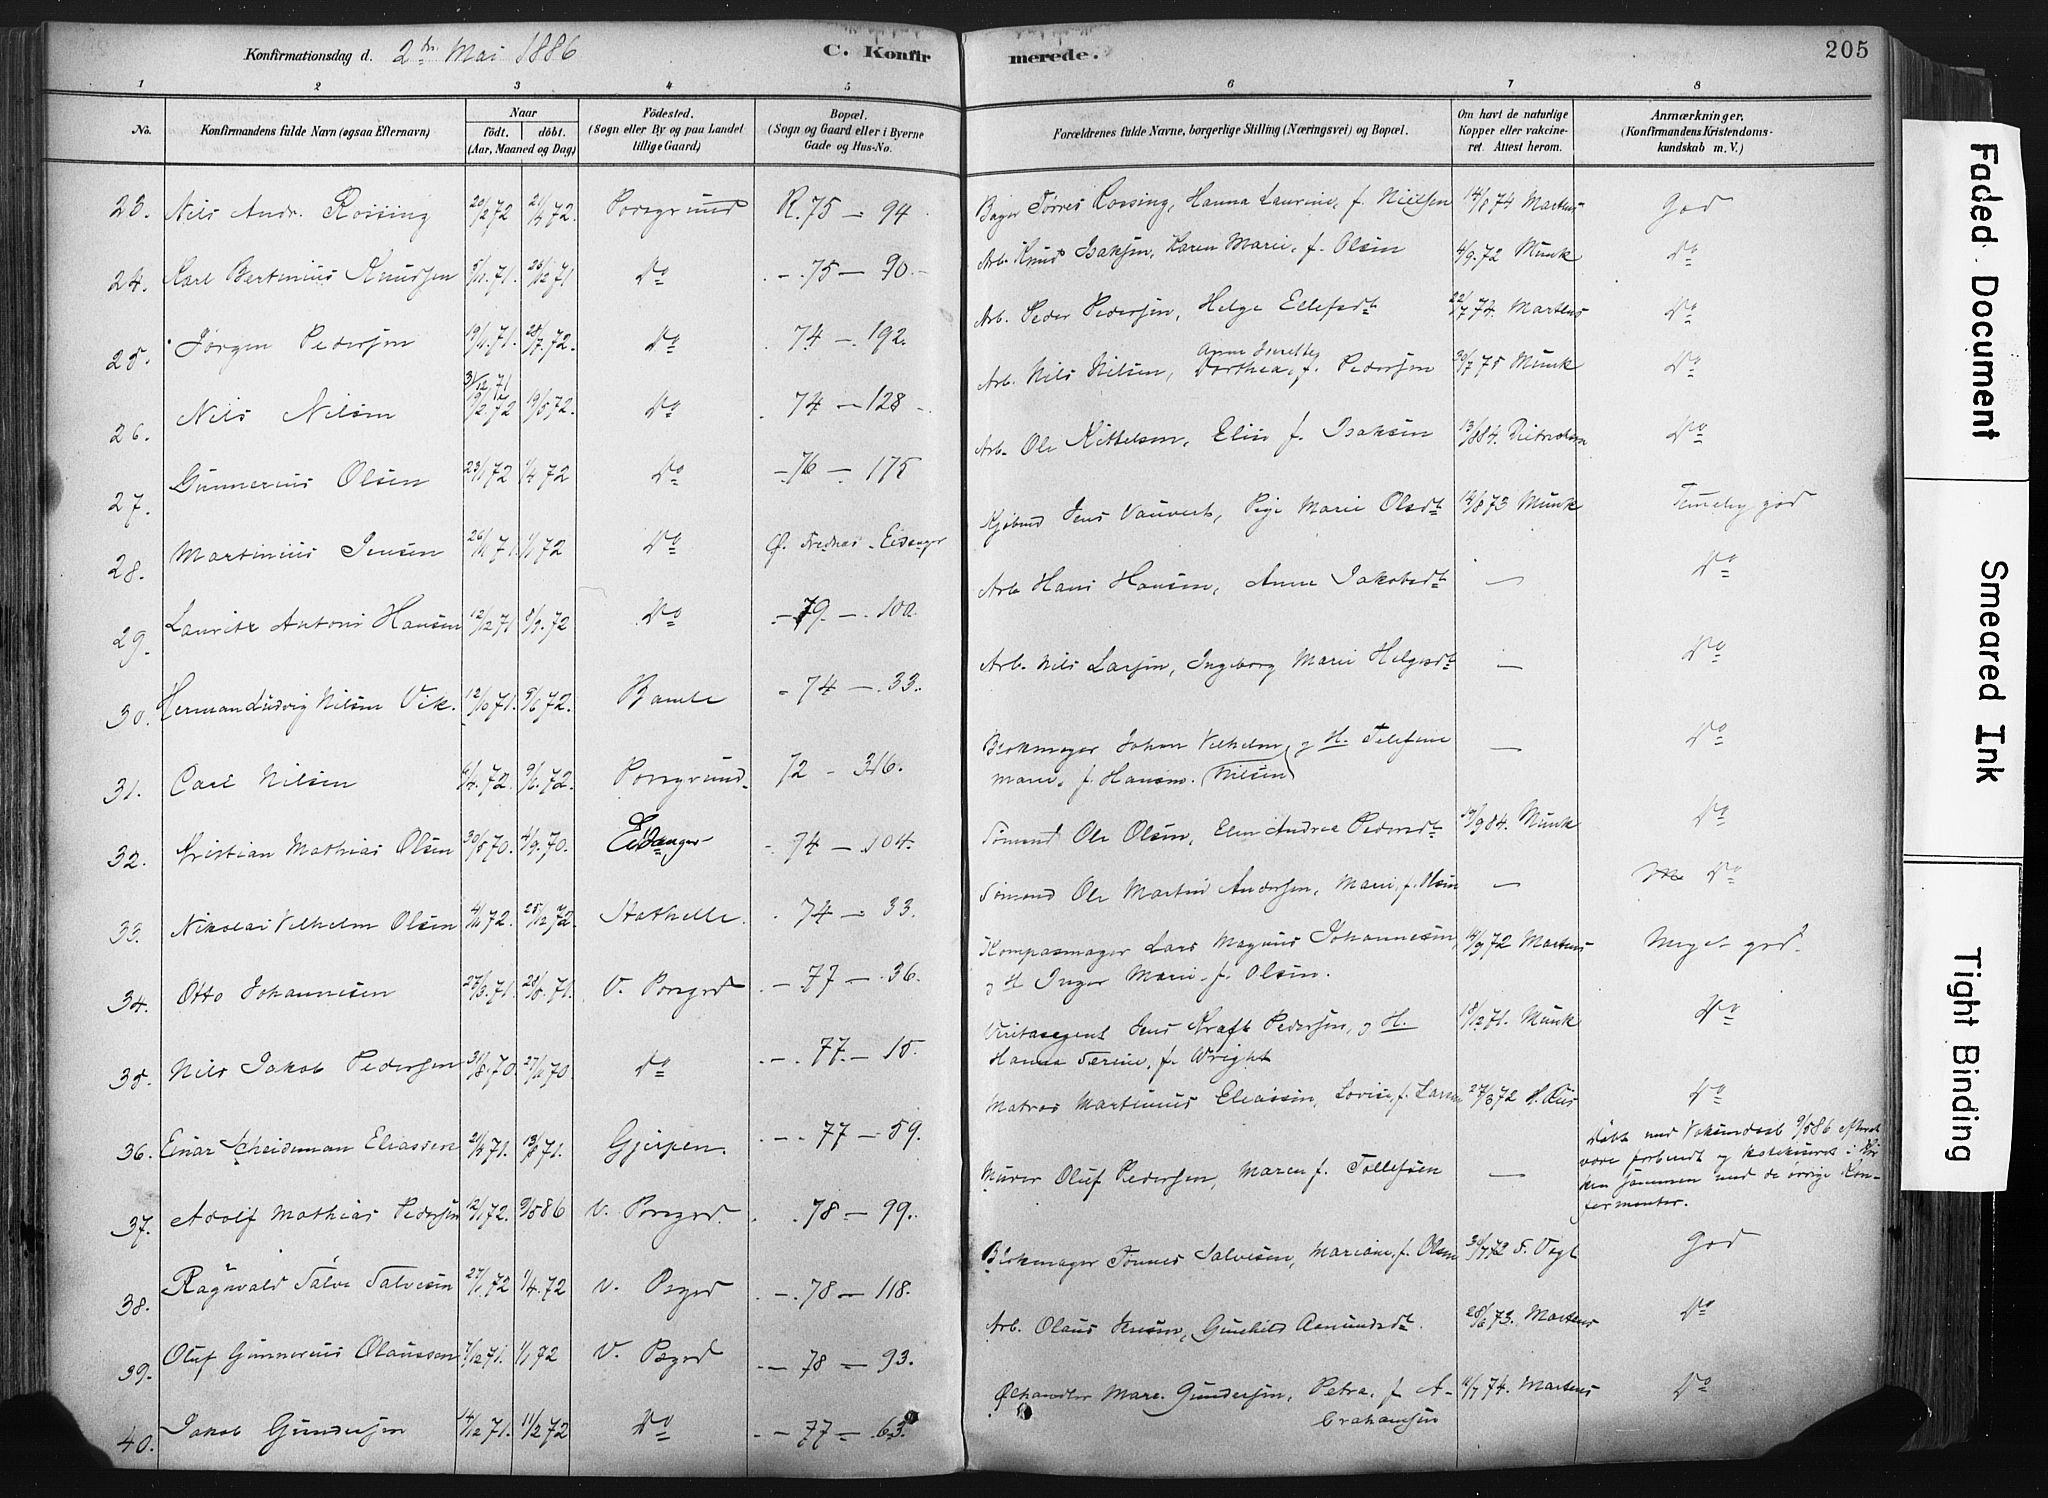 Konfirmationsdag d. 2den Mai 1886
C. Konfirmerede.
205
1 2 3 4 5 6 7 8
No.
Konfirmandens fulde Navn (ogsaa Efternavn)
Naar
født. døbt.
(Aar, Maaned og Dag)
Fødested.
(Sogn eller By og paa Landet
tillige Gaard)
Bopæl.
(Sogn og Gaard eller i Byerne
Gade og Hus-No.
Forældrenes fulde Navne, borgerlige Stilling (Næringsvei) og Bopæl.
Om havt de naturlige
Kopper eller vakcine-
ret. Attest herom.
Anmærkninger.
(Konfirmandens Kristendoms-
kundskab m. V.)
23. Nils Andr. Rossing 20/2 72 21/4 72. Porsgrund R. 75 - 94 Bager Tørres Rossing, Hanna Laurine, f. Nielsen 14/8 74 Martens God
24. Karl Bertinius Knudsen 5/11 71. 26/12 71 Do - 75 - 90 - Arb. Knud Isaksen, Karen Marie, f. Olsen 4/9. 72 Munk Do
25. Jørgen Pedersen 19/11. 71. 28/7. 72. Do 74 - 192. Arb. Peder Pedersen, Helge Ellefsdt 22/7 74. Martens Do
26. Nils Nilsen 31/12 71 19/2 72 19/5 72. Do 74 - 128 - Arb. Nils Nilsen, Dorthea, f. Pedersen 30/7 75 Munk Do
27. Gunnerius Olsen 23/1 72 1/4 72 Do - 76 - 175 Arb. Ole Kittelsen, Elin f. Isaksen 13/8 84. Do
28. Martinius Jensen 26/11 71. 1/1 72 Do Ø. Frednæs - Eidanger Kjøbmd Jens Vauvert, Marie Olsdt 14/8 73 Munk Temmelig god
29. Lauritz Anton Hansen 12/12 71 5/9. 72 Do - 79 - 100. Arb Hans Hansen, Anne Jakobsdt — Do
30. Herman Ludvig Nilsen Vik. 12/10 71. 9/6 72. Bamle - 74 - 33. Arb. Nils Larsen, Ingeborg Marie Helgesdt — Do
31. Carl Nilsen 6/4. 72. 9/6. 72. Porsgrund 72 - 316. Blokmager Johan Vilhelm (Nilsen) og H.
Marie, f. Hansen. — Do
32. Kristian Mathias Olsen 30/5 70. 4/9. 70. Eidanger - 74 - 104. Sømand Ole Olsen, Elen Andrea Pedersdt 19/9 84. Munk Do
33. Nikolai Vilhelm Olsen 4/11 72. 25/12 72. Stathelle. - 74 - 33. Sømand Ole Martin Andersen, Marie, f. Olsen — Do
34. Otto Johannesen 27/3. 71. 28/5. 71. V. Porsgrd - 77 - 36. Kompasmager Lars Magnus Johannesen,
og H Inger Marie f. Olsen. 14/9 72 Martens Meget god.
35. Nils Jakob Pedersen 31/8. 70. 27/11 70. Do - 77 - 15. Veritasagent Jens Kraft Pedersen, og H.
Hanna Serine, f. Wright 18/12 71. Munk Do
36. Einar Scheideman Eliassen 21/4 71. 13/8 71. Gjerpen. - 77 - 59. Matros Martinius Eliassen, Lovise, f. Larsen 27/3 72 H. Riis Do
37. Adolf Mathias Pedersen 12/1 72. 9/5 86 V. Porsgrd. 78 - 99. Murer Oluf Pedersen, Maren f. Tollefsen — Døbt ved Voksendaab 9/5 86 efterat
være forberedt og katekiseret i Kir-
ken sammen med de øvrige Kon-
firmanter.
38. Ragnvald Sølve Salvesen 27/1 72 1/4. 72 V. Psgrd - 78 - 118. Blokmager Tønnes Salvesen, Mariane, f. Olsen 30/7 72 S. Vogt God
39. Oluf Gunnerius Olaussen 7/12 71. 1/1 72 V. Psgrd - 78 - 93. Arb. Olaus Jensen, Gunhild Aamundsdt. 28/6 73. Martens Do
40. Jakob Gundersen 14/12 71. 11/2 72 Do - 77 - 63. Ølhandler Marc. Gundersen, Petra, f. A-
brahamsen 11/7 74. Martens Do
Faded Document
Smeared Ink
Tight Binding